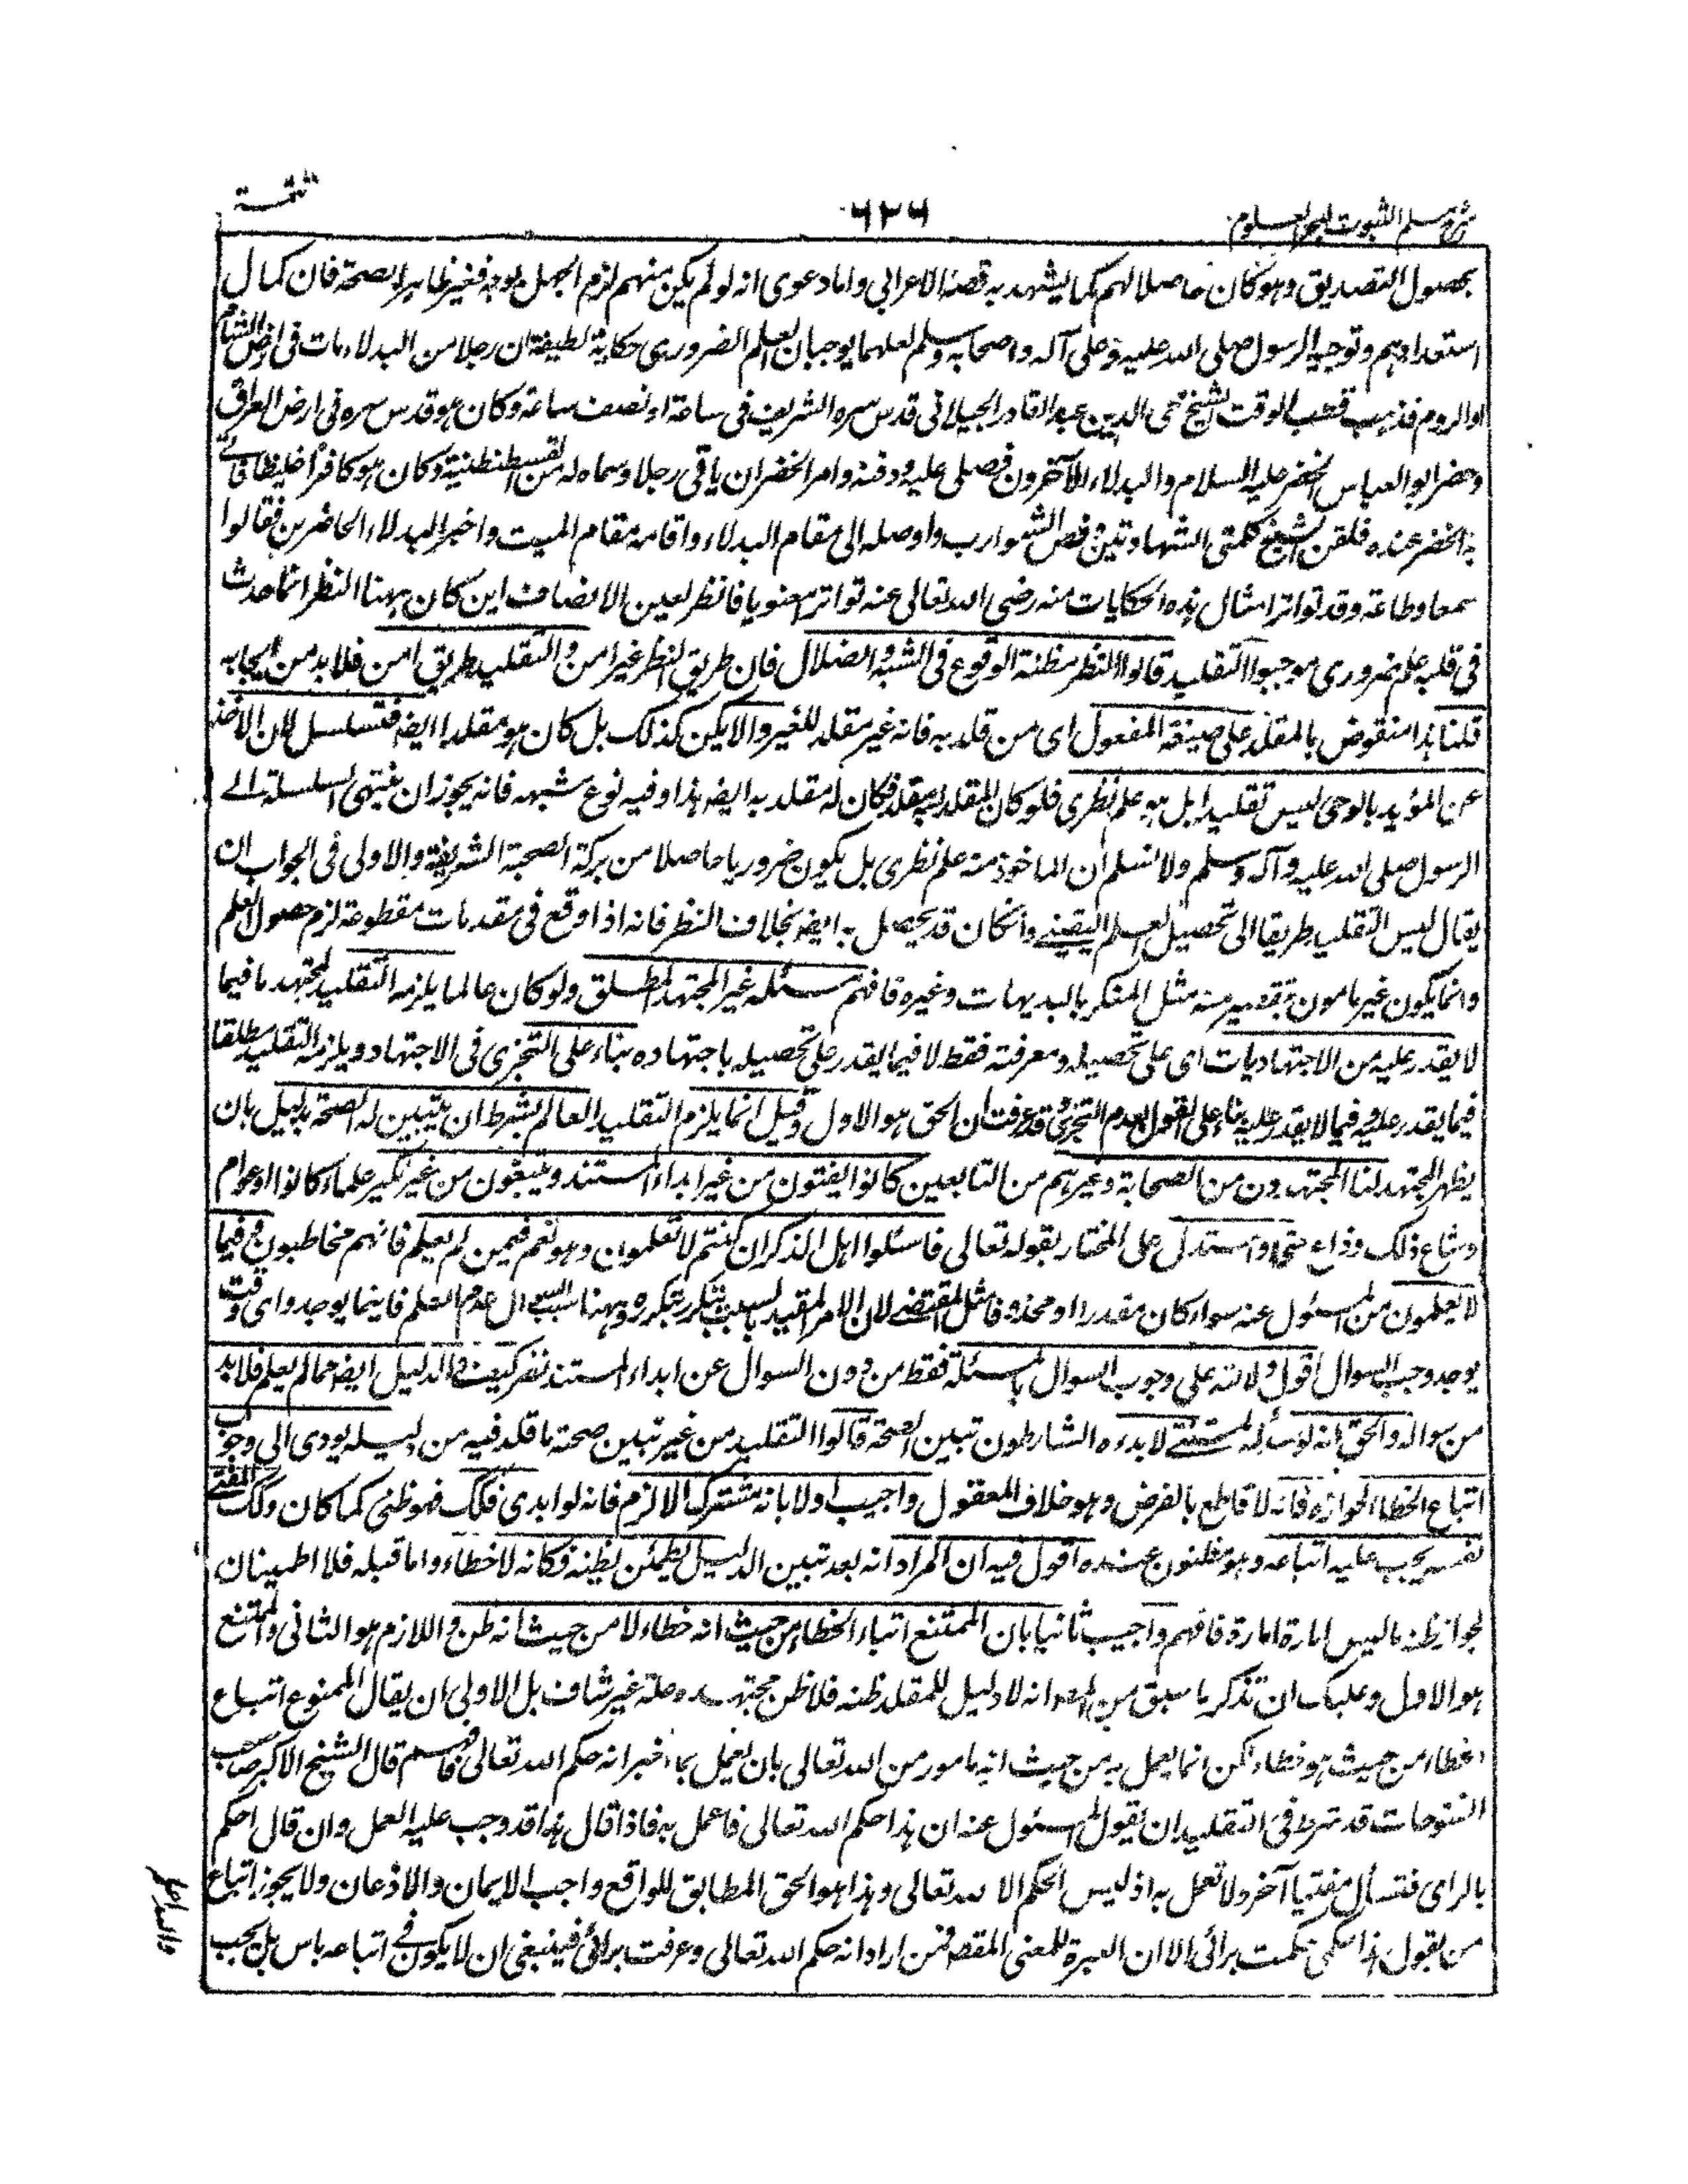 شرح مسلم الثبوت لبحر العلوم
٦٢٦
تتمة
بحصول التصديق وهو كان حاصلا لهم كما يشهد به قصة الاعرابى واما دعوى انه لو لم يكن منهم لزم الجهل بوجه فغير ظاهر الصحة فان كمال
استعدادهم وتوجيه الرسول صلى الله عليه وعلى آله واصحابه وسلم لعلهما يوجبان العلم الضرورى حكاية لطيفة ان رجلا من البدلاء مات فى ارض الشام
او الروم فذهب قطب الوقت الشيخ محى الدين عبد القادر الجيلانى قدس سره الشريف فى ساعة او نصف ساعة وكان هو قدس سره فى ارض العراق
وحضر ابو العباس الخضر عليه السلام والبدلاء الآخرون فصلى عليه ودفنه وامر الخضر ان ياتى رجلا وسماه له من القسطنطنية وكان هو كافرا غليظا فاتى
به الخضر عنده فلقن الشيخ كلمتى الشهادتين وقص الشوارب واوصله الى مقام البدلاء واقامه مقام الميت واخبر البدلاء الحاضرين فقالوا
سمعا وطاعة وقد تواتر امثال هذه الحكايات منه رضى الله تعالى عنه تواترا معنويا فانظر بعين الانصاف اين كان ههنا النظر انما حدث
فى قلبه علم ضرورى موجبوا التقليد قالوا النظر مظنة الوقوع فى الشبه والضلال فان طريق النظر غير امن والتقليد طريق امن فلا بد من ايجابه
قلنا هذا منقوض بالمقلد على صيغة المفعول اى من قلد به فانه غير مقلد للغير والا يكن كذلك بل كان هو مقلدا ايضا فتسلسل لان الاخذ
عن المؤيد بالوحى ليس تقليدا بل هو علم نظرى فلو كان المقلد به مقلدا فكان له مقلد به ايضا هذا وفيه نوع شبهه فانه يجوز ان ينتهى السلسلة الى
الرسول صلى الله عليه وآله وسلم ولا نسلم ان الماخوذ منه علم نظرى بل يكون ضروريا حاصلا من بركة الصحبة الشريفة والاولى فى الجواب ان
يقال ليس التقليد طريقا الى تحصيل العلم اليقينى وانكان قد يحصل به ايضا بخلاف النظر فانه اذا وقع فى مقدمات مقطوعة لزم حصول العلم
وانما يكون غير مامون بتقصير منه مثل المفكر بالبديهات وغيره فافهم مسئلة غير المجتهد المطلق ولو كان عالما يلزمه التقليد لمجتهد ما فيما
لا يقدر عليه من الاجتهاديات اى على تحصيله ومعرفته فقط لا فيما يقدر على تحصيله باجتهاده بناء على التجزى فى الاجتهاد ويلزمه التقليد مطلقا
فيما يقدر عليه وفيما لا يقدر عليه بناء على القول بعدم التجزى وقد عرفت ان الحق هو الاول وقيل انما يلزم التقليد العالم بشرط ان يتبين له الصحة بدليل بان
يظهر المجتهد لنا المجتهدون من الصحابة وغيرهم من التابعين كانوا يفتون من غير ابداء المستند ويتبعون من غير نكير علماء كانوا او عوام
وشاع ذلك وذاع حتما واستدل على المختار بقوله تعالى فاسئلوا اهل الذكر ان كنتم لا تعلمون وهو نعم فيمن لم يعلم فانهم مخاطبون وفيما
لا يعلمون من المسئول عنه سواء كان مقدرا او محذوفا مثل المقتضى لان الامر المقيد بالسبب يتكرر بتكرره وههنا سبب السوال عدم العلم فاينما يوجد واى وقت
يوجد وجب السوال اقول دلالته على وجوب السوال بالمسئلة فقط من دون السوال عن ابداء المستند نظر كيف والدليل ايضا مما لم يعلم فلا بد
من سواله والحق انه لو سأله المستفتى لا بداه الشارطون تبين الصحة قالوا التقليد من غير تبين صحة ما قلد فيه من دليله يودى الى وجوب
اتباع الخطاء لجوازه فانه لا قاطع بالفرض وهو خلاف المعقول واجيب اولا بانه مشترك الالزم فانه لو ابدى فكك فهو ظنى كما كان وكك المفتى
نفسه يجب عليه اتباعه وهو مظنون عنده اقول فيه ان المراد انه بعد تبين الدليل يطمئن لظنه فكانه لا خطاء واما قبله فلا اطمينان
لجواز ظنه ما ليس امارة امارة فافهم واجيب ثانيا بان الممتنع اتباع الخطاء من حيث انه خطاء لا من حيث انه ظن واللازم هو الثانى والممتنع
هو الاول وعليك ان تذكر ما سبق من انه لا دليل للمقلد ظنه فلا ظن مجتهده وحله غير شاف بل الاولى ان يقال الممنوع اتباع
الخطاء من حيث هو خطاء لكن انما يعمل به من حيث انه مامور من الله تعالى بان يعمل بما اخبر انه حكم الله تعالى فافهم قال الشيخ الاكبر صاحب
الفتوحات قد شرط فى التقليد ان يقول المسئول عنه ان هذا حكم الله تعالى فاعمل به فاذا قال هذا قد وجب عليه العمل وان قال احكم
بالراى فتسأل مفتيا آخر ولا تعمل به اذ ليس الحكم الا لله تعالى وهذا هو الحق المطابق للواقع واجب الايمان والاذعان ولا يجوز اتباع
من يقول هذا حكمى حكمت برائى الا ان العبرة للمعنى المقصود فمن اراد انه حكم الله تعالى وعرفت برائى فينبغى ان لا يكون فى اتباعه باس بل يجب
والله اعلم